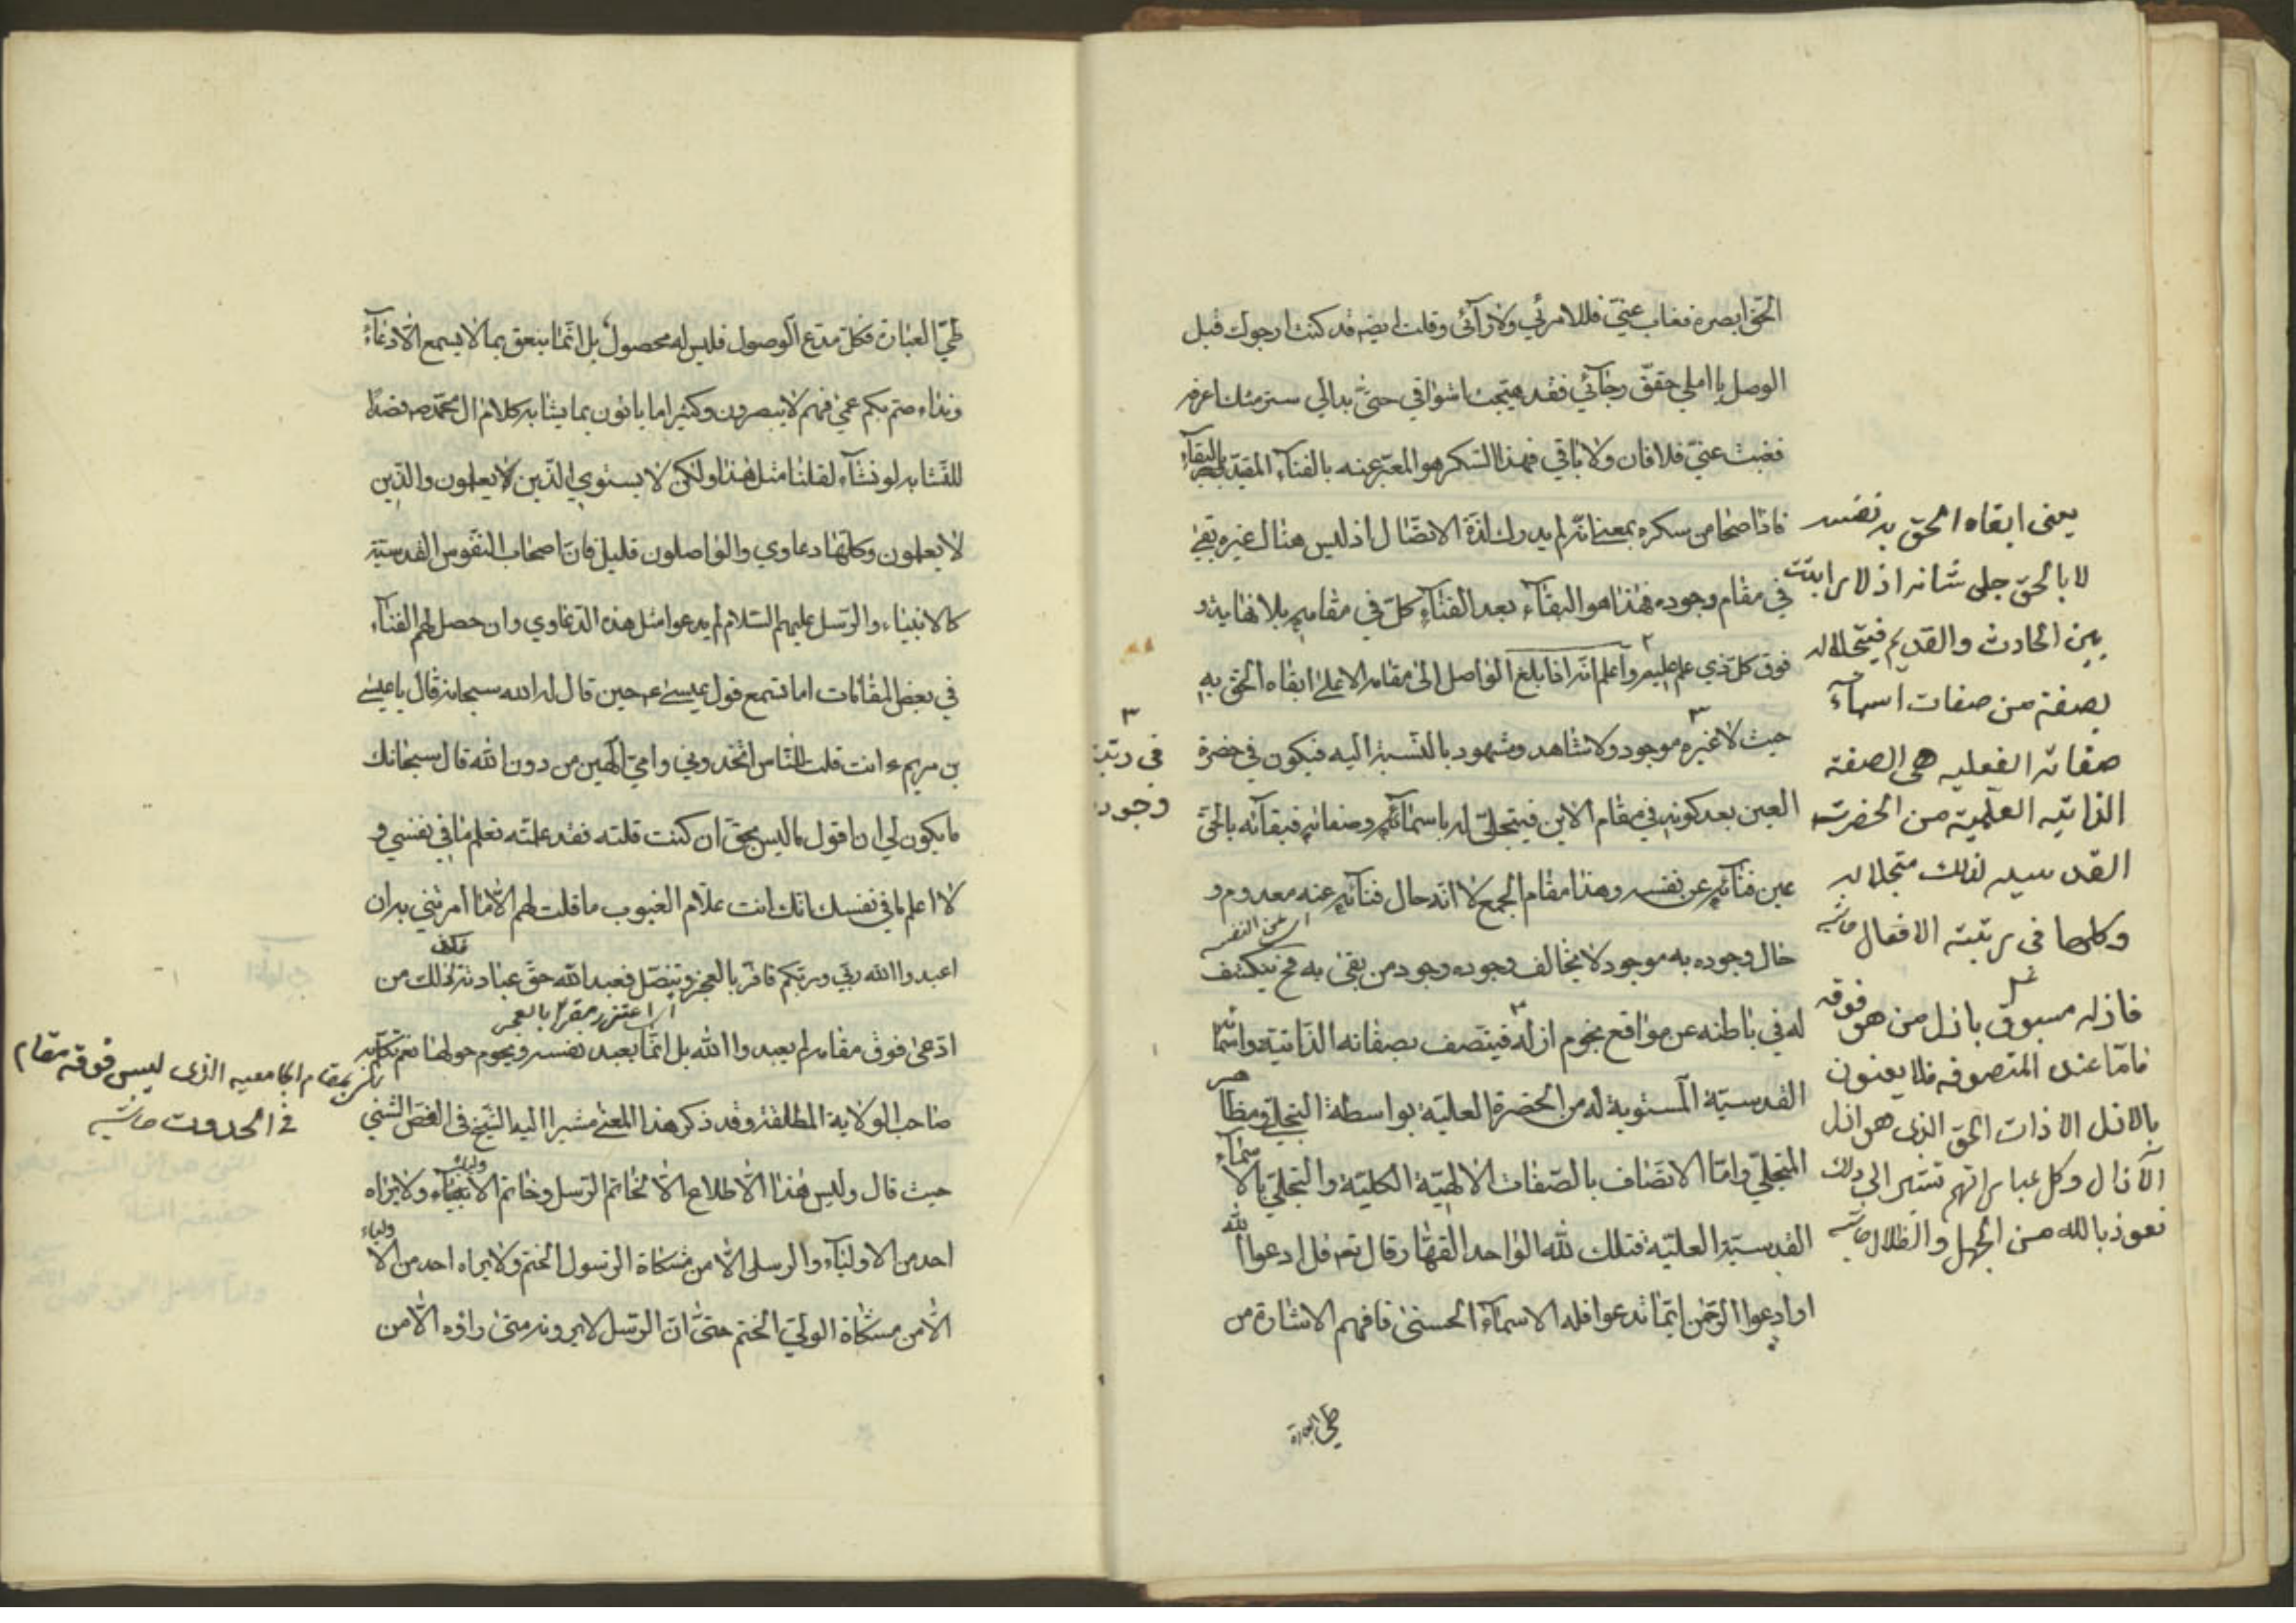 الحق ابصره فغاب عني فلا مرئي ولا رآئي وقلت ايضه قد كنت ارجوك قبل
الوصل يا املي حقق رجآئي فقد هيجت اشواقي حتى بدالي سر منك اعرفه
فغبت عني فلا فان ولا باقي فهذا السكر هو المعبر عنه بالفنآء المقيد بالبقآء
فاذا صحا من سكره بمعنى انه لم يدرك لذة الاتصال اذ ليس هناك غيره بقي
في مقام وجوده فهذا هو البقآء بعد الفنآء كل في مقامه بلا نهاية و
فوق كل ذي علم عليم واعلم انه اذا بلغ الواصل الى مقامه الاعلى ابقاه الحق به
حيث لا غيره موجود ولا شاهد ومشهود بالنسبة اليه فيكون في حضرة
العين بعد كونه في مقام الاين فيتجلى له باسمآئه وصفاته فبقآئه بالحق
عين فنآئه عن نفسه وهذا مقام الجمع لا انه حال فنآئه عنه معدوم و
حال وجوده به موجود لا يخالف وجوده وجود من بقى به فح ينكشف
اي عن النفس
له في باطنه عن مواقع نجوم ازله فيتصف بصفاته الذاتية واسمآئه
القدسية المستوية له من الحضرة العلية بواسطة التجلي ومظاهر
المتجلي واما الاتصاف بالصفات الالهية الكلية والتجلي بالاسمآء
القدسية العلية فتلك لله الواحد القهار قال تع قل ادعوا الله
او ادعوا الرحمن ايّما تدعوا فله الاسمآء الحسنى فافهم الاشارة من
طي العبارة
يعني ابقاه الحق به نفسه
لا بالحق جل شانه اذ لا رابطة
بين الحادث والقديم فيتجلى له
بصفة من صفات اسمآء
صفاته الفعليه هي الصفة
الذاتيه العلمية من الحضرت
القدسيه لذلك متجلا له
وكلها في رتبته الافعال حاشيه
فازله مسبوق بازل من هو فوقه
فاما عند المتصوفه فلا يعنون
بالازل الا ذات الحق الذي هو ازل
الآزال وكل عباراتهم تشير الى ذلك
نعوذ بالله من الجهل والظلال حاشيه
في رتبة
وجود
طي العبارة فكل مدع الوصول فليس له محصول بل انما ينعق بما لا يسمع الا دعآء
ونداء صم بكم عمي فهم لا يبصرون وكثيرا ما ياتون بما يشابه كلام ال محمد ص قصدا
للتشابه لو نشآء لقلنا مثل هذا ولكن لا يستوي الذين يعلمون والذين
لا يعلمون وكلها دعاوي والواصلون قليل فان اصحاب النفوس القدسية
كالانبياء والرسل عليهم السلام لم يدعوا مثل هذه الدعاوي وان حصل لهم الفنآء
في بعض المقامات اما تسمع قول عيسى ع حين قال له الله سبحانه قال يا عيسى
بن مريم ءانت قلت للناس اتخذوني وامي الهين من دون الله قال سبحانك
ما يكون لي ان اقول ما ليس بحق ان كنت قلته فقد علمته تعلم ما في نفسي و
لا اعلم ما في نفسك انك انت علام الغيوب ما قلت لهم الا ما امرتني به ان
اعبدوا الله ربي وربكم فاقر بالعجز وتنصل فعبد الله حق عبادته فذلك من
اي اعتذر مقرا بالعجز
ادعى فوق مقامه لم يعبد والله بل انما يعبد نفسه ويحوم حولها نعم تكلم
صاحب الولاية المطلقة وقد ذكر هذا المعنى مشيرا اليه الشيخ في الفص الشيثي
حيث قال وليس هذا الاطلاع الا لخاتم الرسل وخاتم الاولياء ولا يراه
احد من الاوليآء والرسل الا من مشكاة الرسول الختم ولا يراه احد من الاولياء
الا من مشكاة الولي الختم حتى ان الرسل لا يرونه متى راؤه الا من
بمقام الجامعيه الذي ليس فوقه مقام
في الحدوث حاشيه